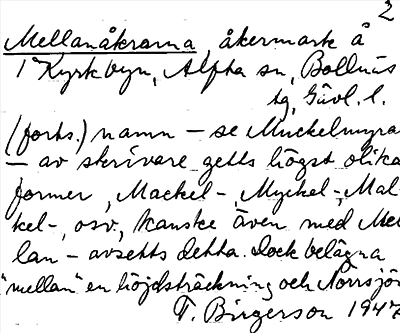 2
Mellanåkrarna, åkermark å
1 Kyrkbyn, Alfta sn, Bollnäs
tg, Gävl. l.
(forts.) namn – se Muckelmyra
– av skrivare getts högst olika
former, Mackel-, Myckel-, Mal-
kel-, osv, kanske även med Mel-
lan – avsetts detta. Dock belägna
"mellan" en höjdsträckning och Norrsjön
T. Birgerson 1947